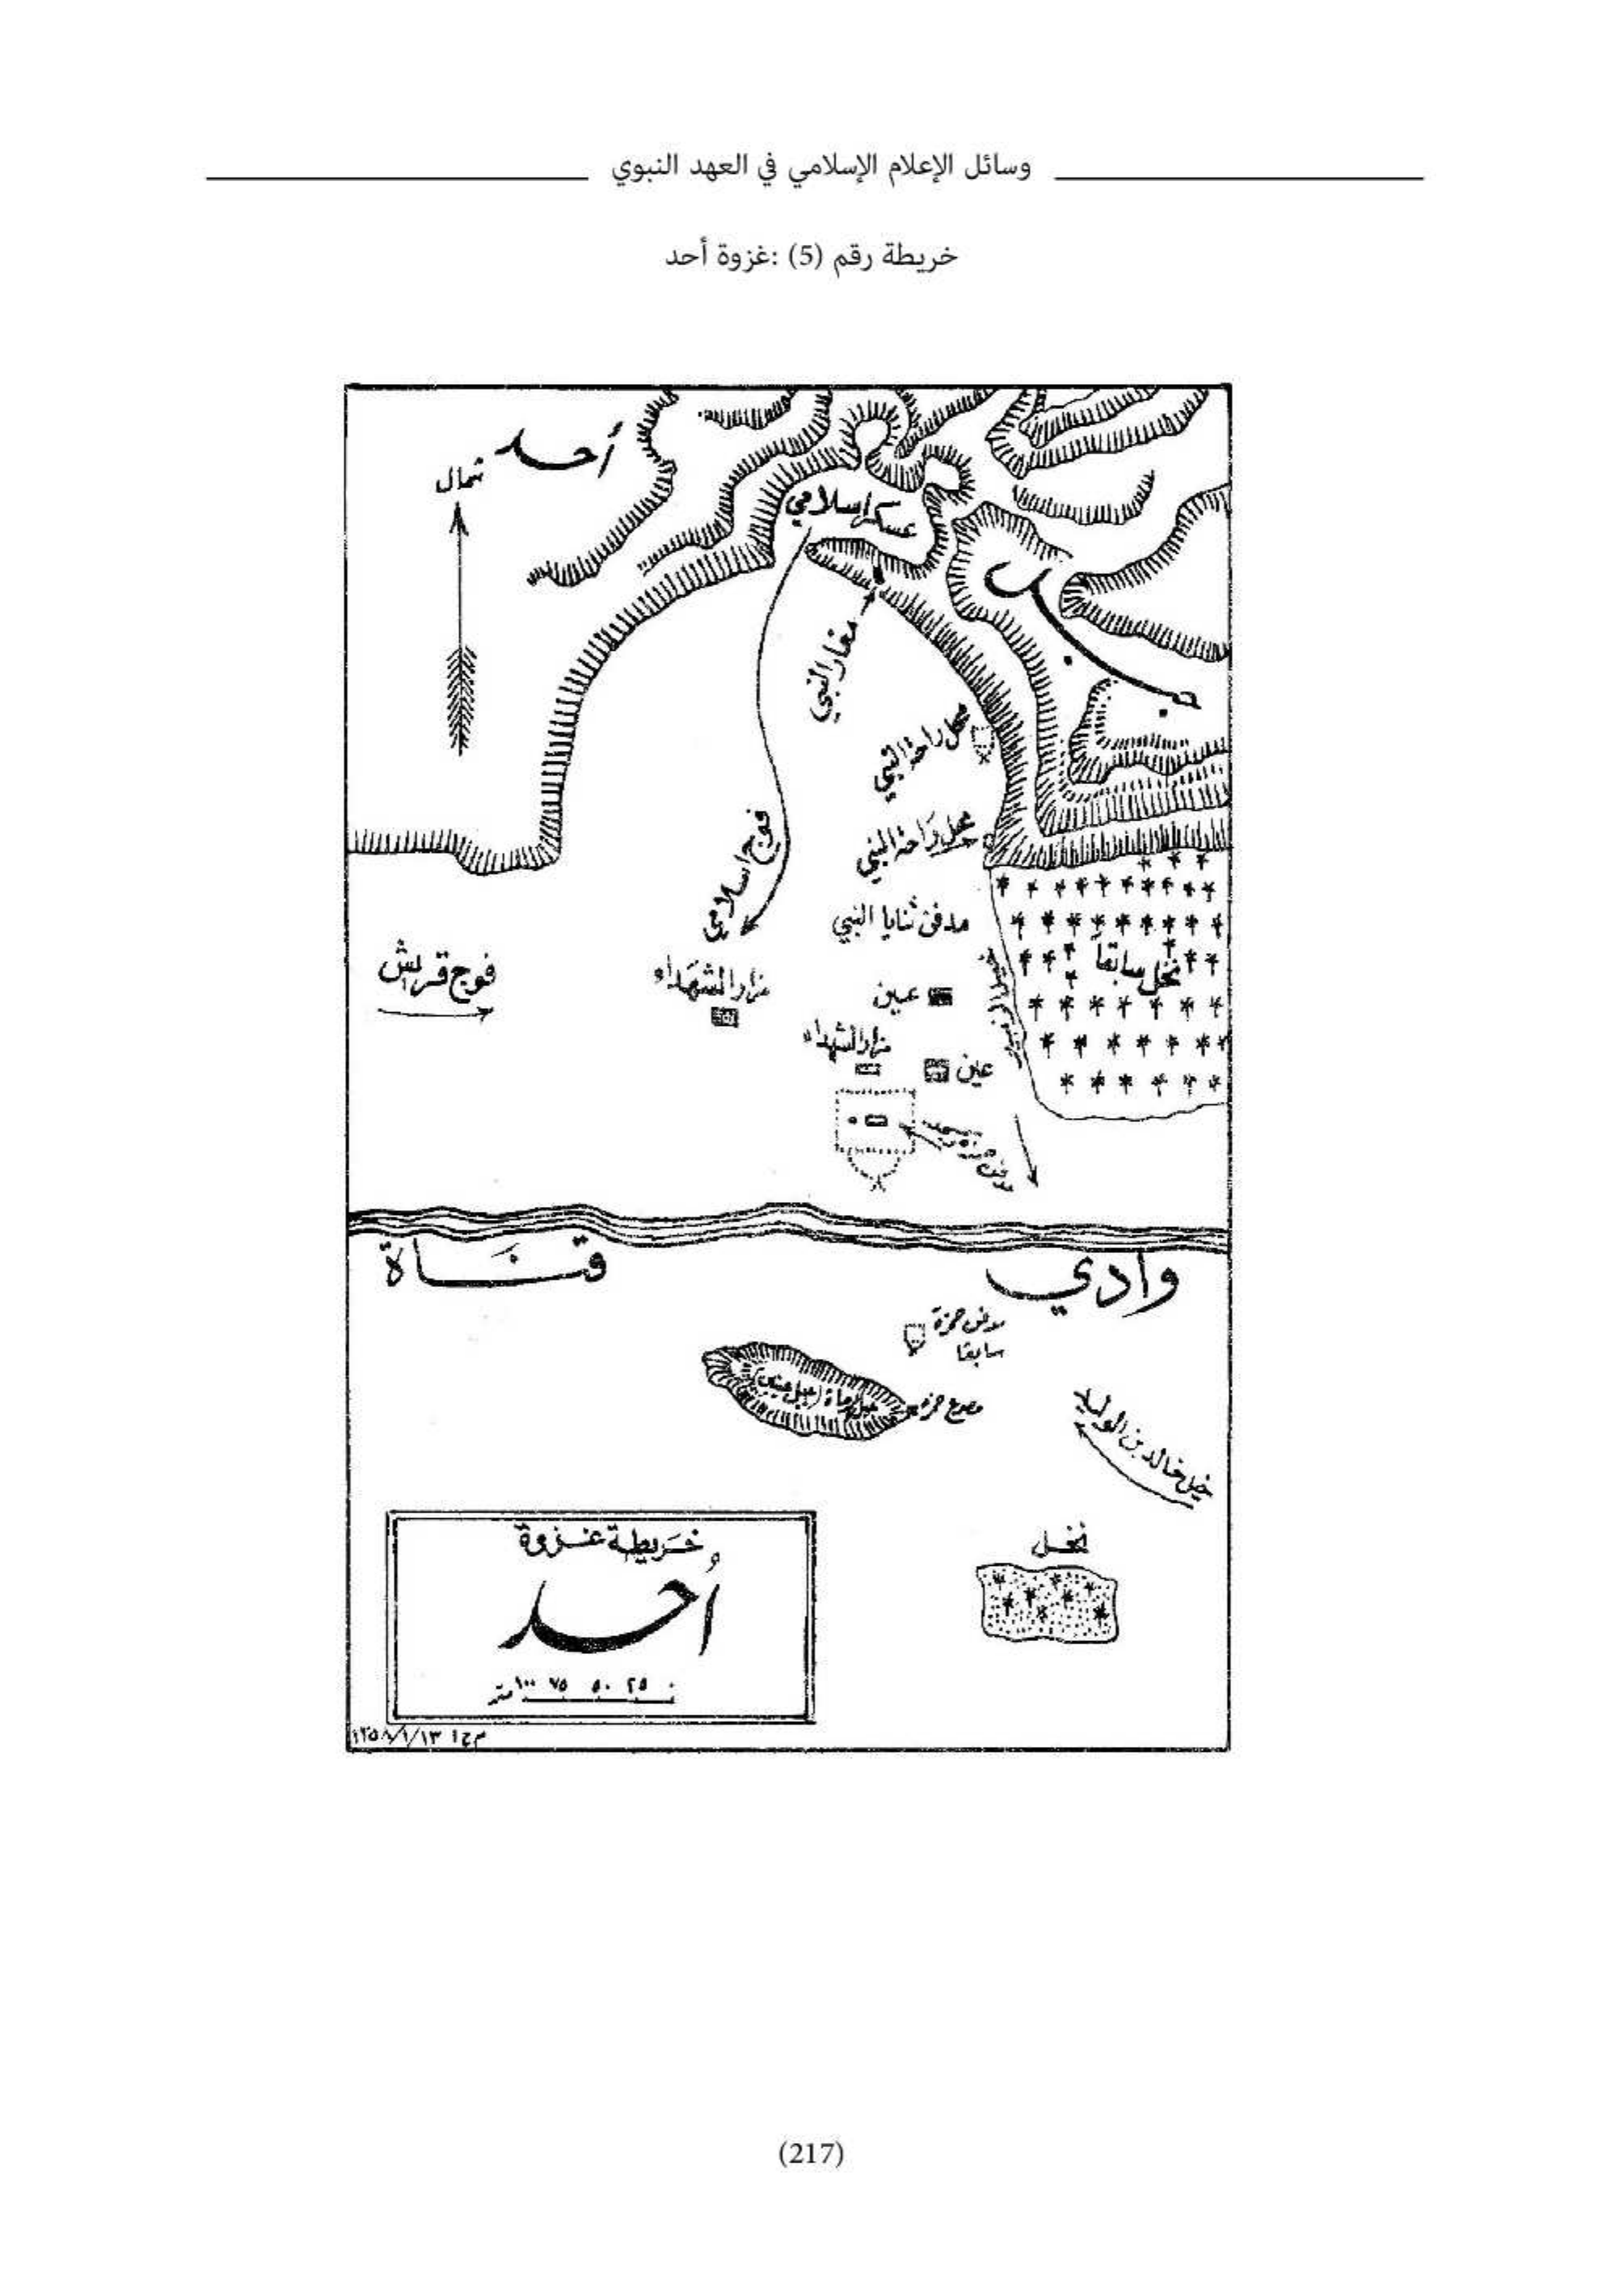 وسائل الإعلام الإسلامي في العهد النبوي
خريطة رقم (5) :غزوة أحد
أحد
شمال
عسكر اسلامي
جبل
مغار النبي
محل راحة النبي
محل راحة النبي
فوج اسلامي
مدفن ثنايا النبي
نخل سابقاً
فوج قريش
مزار الشهداء
عين
مزار الشهداء
عين
وادي قناة
مدفن حمزة
سابقا
جبل الرماة (جبل عينين)
مصرع حمزة
خيل خالد بن الوليد
نخل
خريطة غزوة
أُحد
٠ ٢٥ ٥٠ ٧٥ ١٠٠ متر
(217)